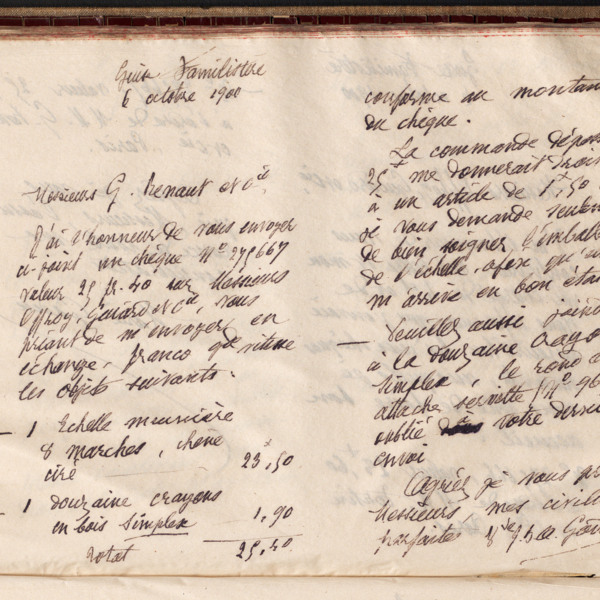 Guise Familistère
6 octobre 1900
Messieurs G. Renaut et Cie,
J'ai l'honneur de vous envoyer
ci-joint un chèque No 275667
valeur 25 fr. 40 sur Messieurs
Offroy, Guiard et Cie, vous
priant de m'envoyer en
échange, franco gde vitesse
les objets suivants.
— 1 Echelle meunière
8 marches, chêne
ciré 23,50
— 1 douzaine crayons
en bois Simplex 1,90
Total 25,40
conforme au montan
du chèque.
La commande dépas
25f me donnerait droit
à un article de 1f,50
je vous demande seulem
de bien soigner l'emball
de l'échelle, afin qu'
m'arrive en bon éta
— Veuillez aussi joind
à la douzaine crayo
Simplex, le rond
attache serviette (No 96
oublié dans votre derni
envoi
Agréez je vous pr
Messieurs, mes civil
parfaites